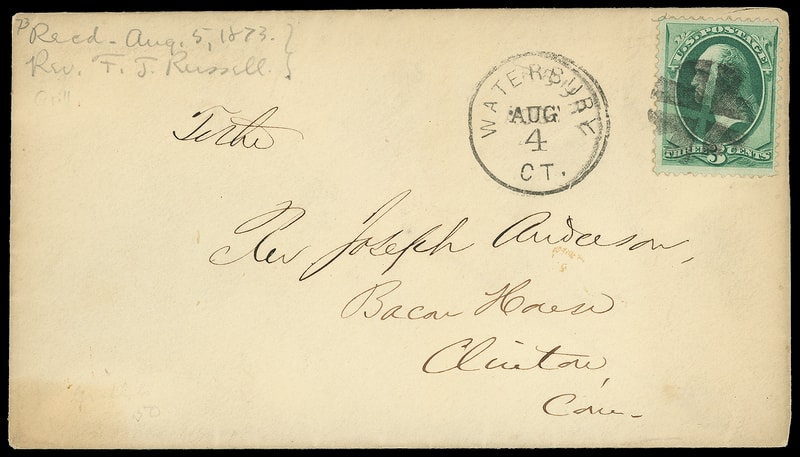 73
Recd - Aug. 5, 1873.
Rev. F. J. Russell.
Grill.
U.S. POSTAGE
THREE 3 CENTS
WATERBURY
AUG
4
CT.
Rev Joseph Anderson,
Bacon House
Clinton,
Conn.
50